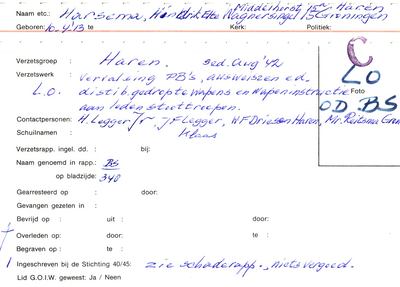 Middelhorst 15, Haren
Naam etc.: Harsema, Hendrik Elte Wagnersingel Groningen
Geboren: 10-4-'13 te Kerk: Politiek:
Verzetsgroep : Haren. sed. aug '42
Verzetswerk : Vervalsing PB's, ausweisen ed.
L.O. distrib. gedropte wapens en wapeninstructie
aan leden stoottroepen.
C
LO
Foto
OD BS
Contactpersonen: H. Legger Jr. JF Legger, WF Driessen Haren, Mr. Reitsma
Schuilnamen : Klaas
Verzetsrapp. ingel. dd. : bij:
Naam genoemd in rapp.: BS
op bladzijde: 348
Gearresteerd op : door:
Gevangen gezeten in :
Bevrijd op : uit : door:
Overleden op: door: te :
Begraven op : te :
Ingeschreven bij de Stichting 40/45: zie schaderapp., niets vergoed.
Lid G.O.I.W. geweest: Ja / Neen